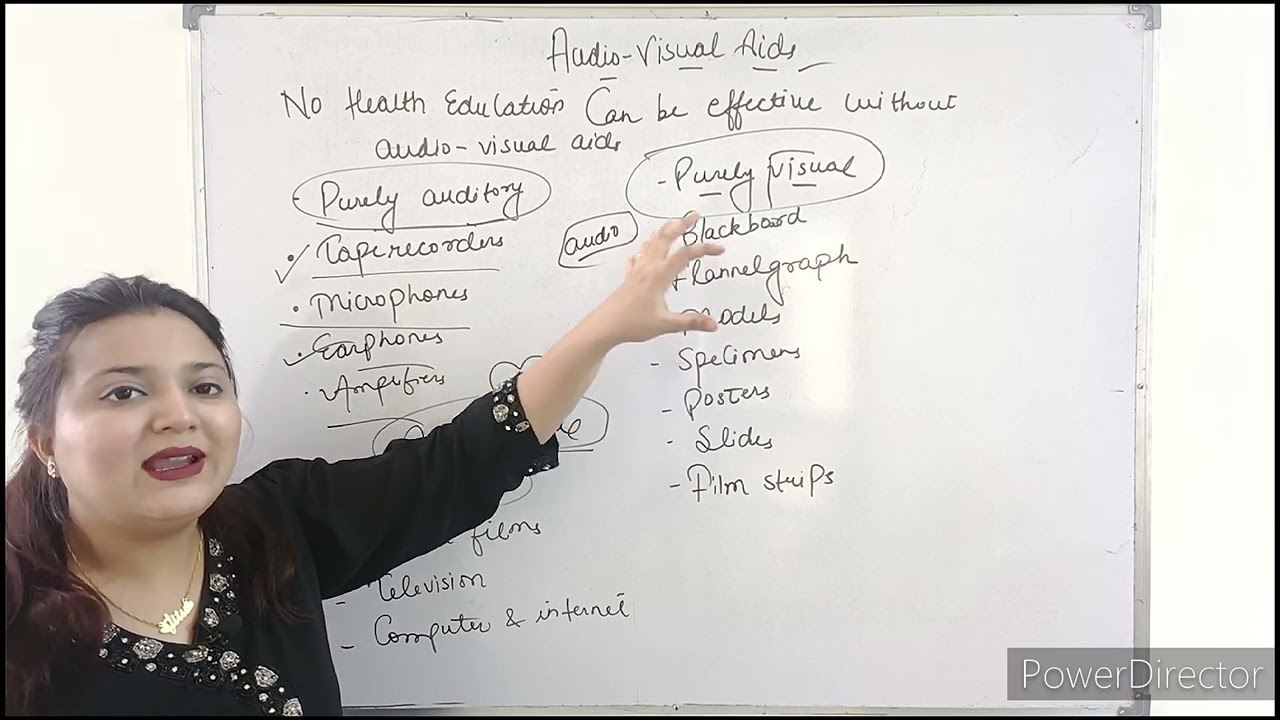 Audio-Visual Aids
No Health Education Can be effective without
audio-visual aids
- Purely auditory
• Taperecorders
• Microphones
• Earphones
• Amplifiers
films
- Television
- Computer & internet
audio
- Purely visual
Blackboard
Flannelgraph
Models
- Specimens
- Posters
- Slides
- Film strips
PowerDirector